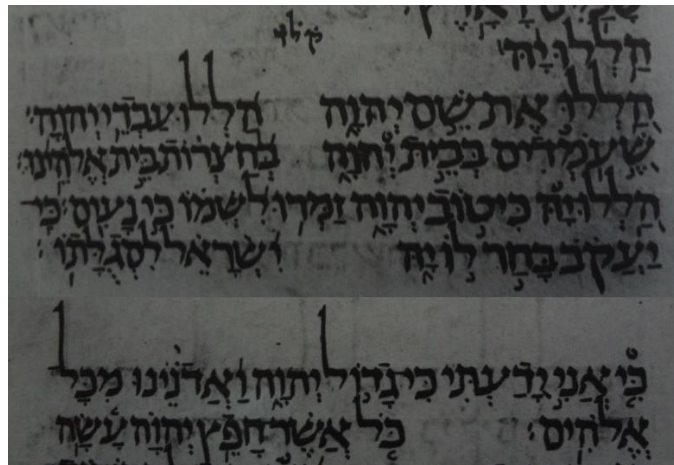 הַלְלוּיָהּ׃
הַלְלוּ אֶת שֵׁם יְהוָה הַלְלוּ עַבְדֵי יְהוָה׃
שֶׁעֹמְדִים בְּבֵית יְהוָה בְּחַצְרוֹת בֵּית אֱלֹהֵינוּ׃
הַלְלוּיָהּ כִּי טוֹב יְהוָה זַמְּרוּ לִשְׁמוֹ כִּי נָעִים׃ כִּי
יַעֲקֹב בָּחַר לוֹ יָהּ יִשְׂרָאֵל לִסְגֻלָּתוֹ׃
כִּי אֲנִי יָדַעְתִּי כִּי גָדוֹל יְהוָה וַאֲדֹנֵינוּ מִכָּל
אֱלֹהִים׃ כֹּל אֲשֶׁר חָפֵץ יְהוָה עָשָׂה